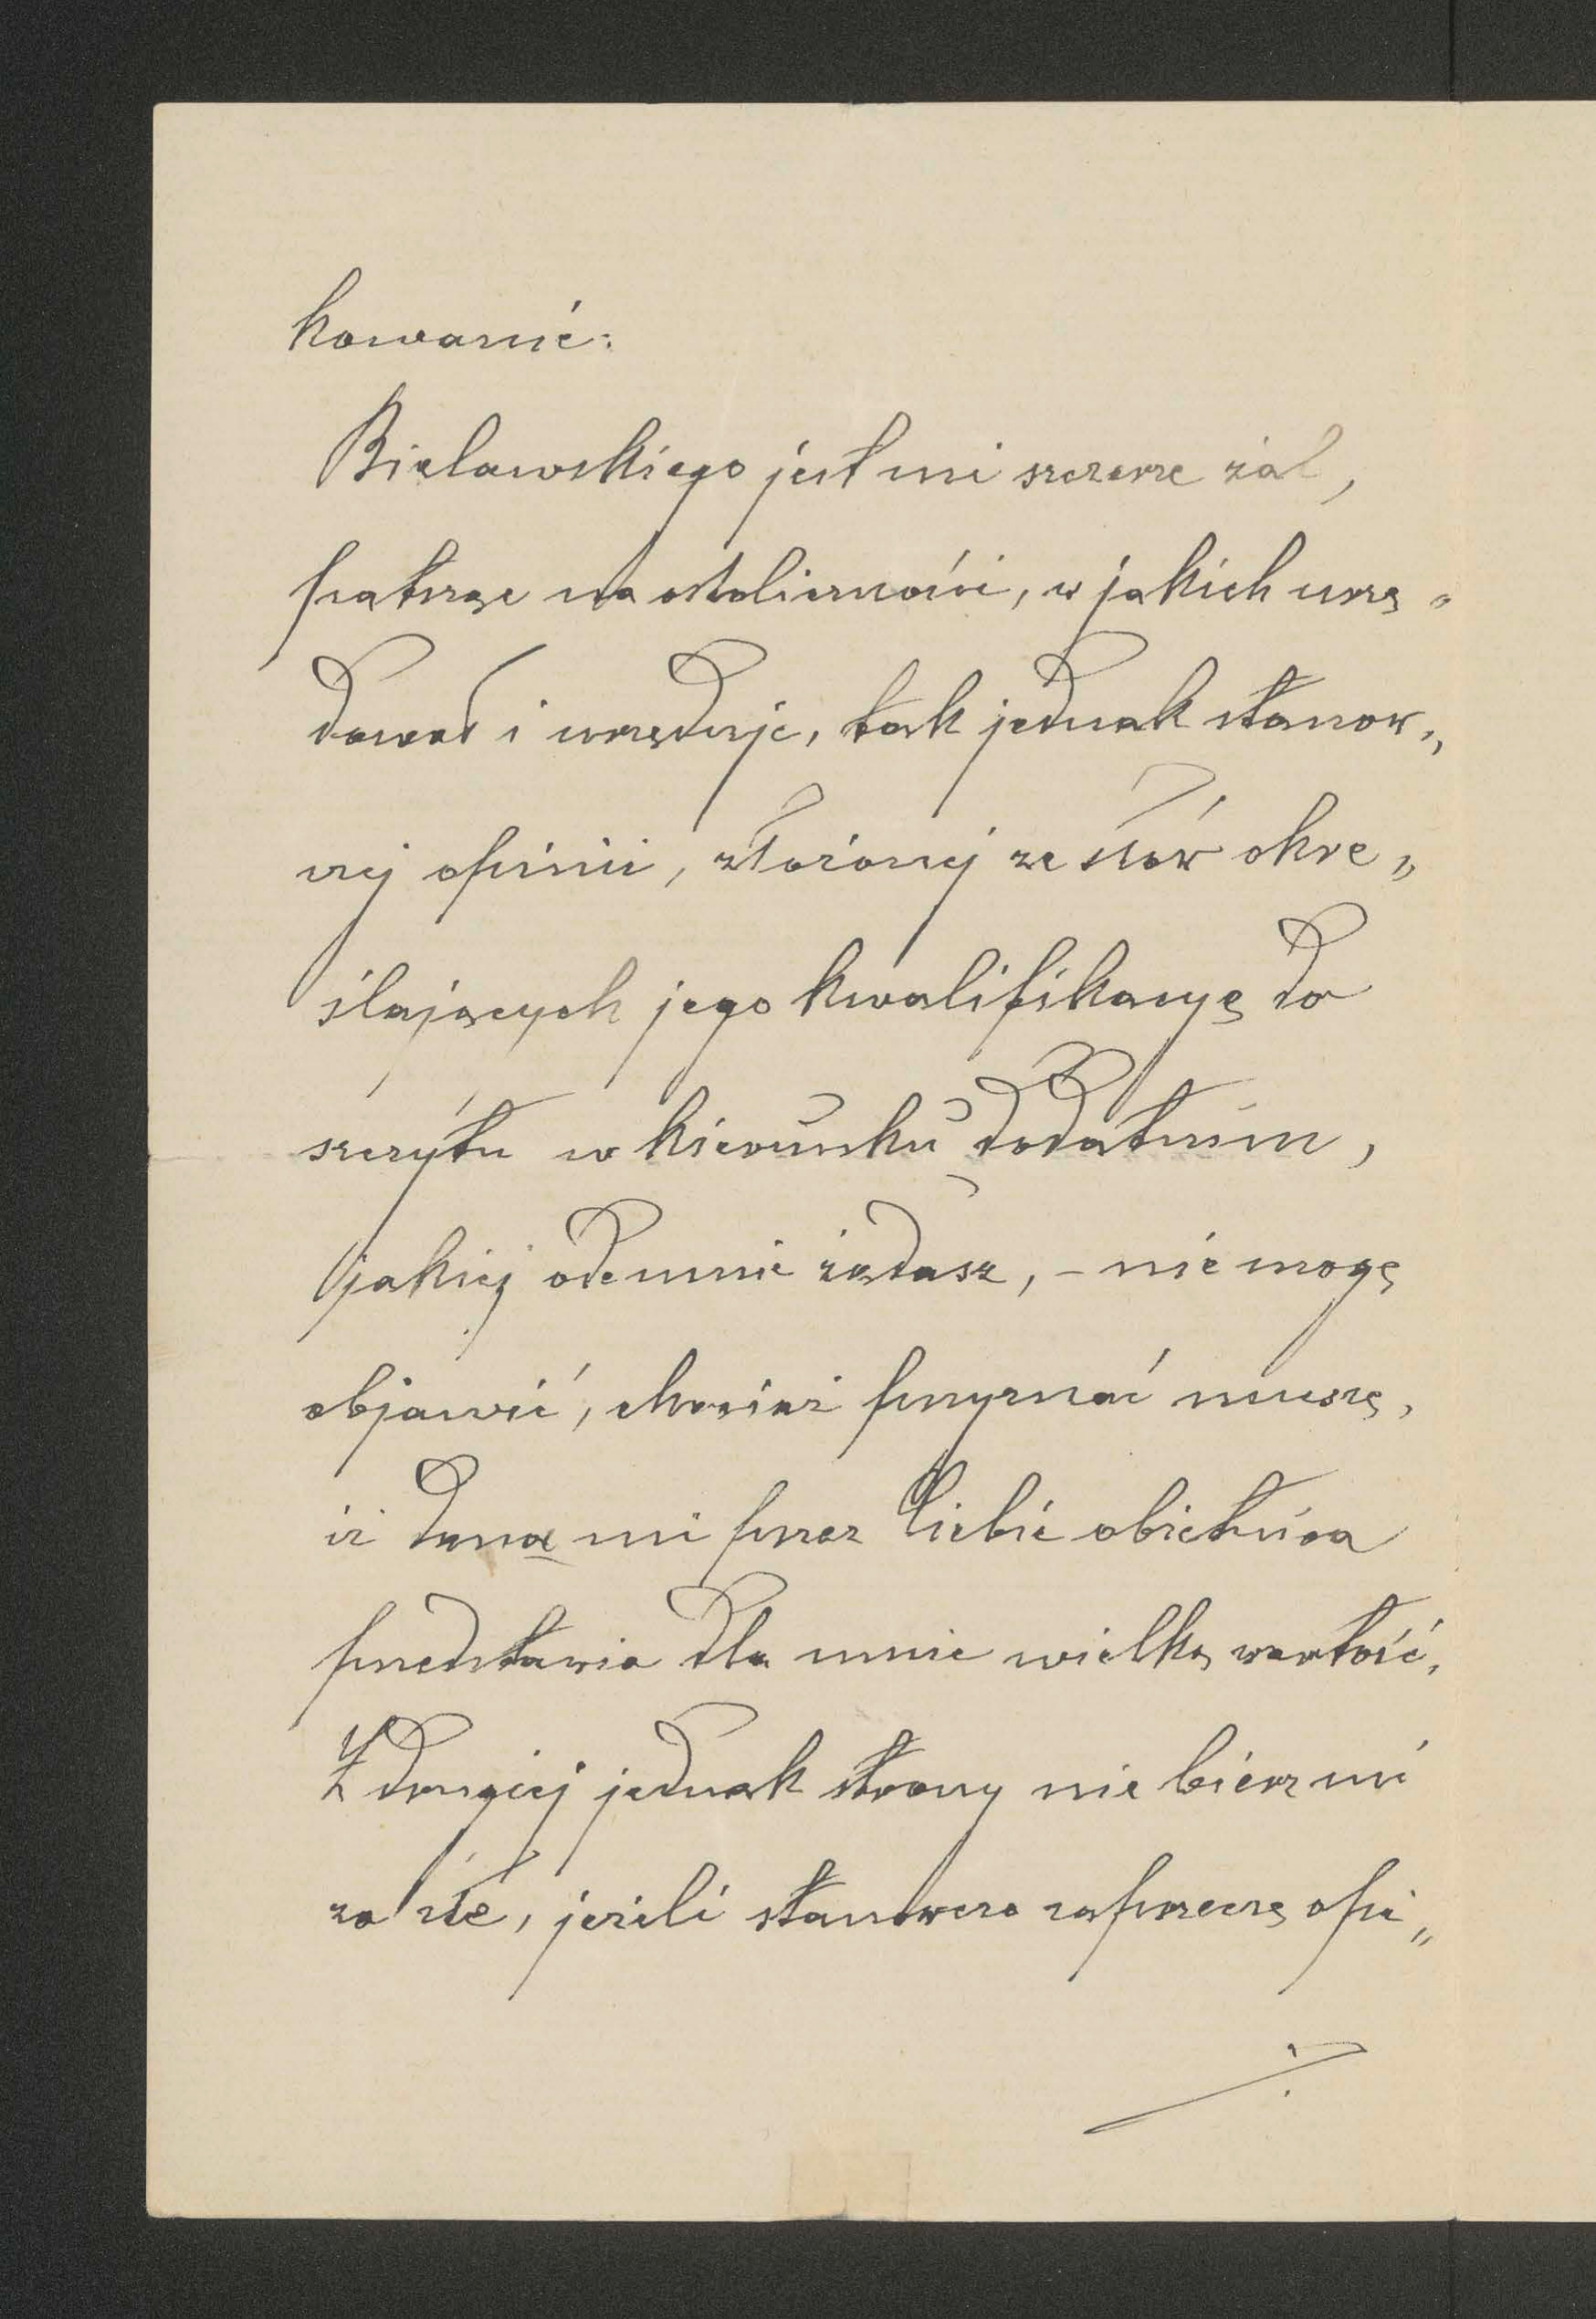 kowanie:
Bielawskiego jest mi szczerze żal,
patrząc na okoliczności, w jakich urzę„
dował i urzęduje, tak jednak stanow„
czej opinii, złożonej ze słów okre„
ślających jego kwalifikacyę do
szczytu w kierunku dodatnim,
jakiej odemnie żądasz, – nie mogę
objawić, chociaż przyznać muszę,
iż dana mi przez Ciebie obietnica
przedstawia dla mnie wielką wartość.
Z drugiej jednak strony nie bierz mi
za złe, jeżeli stanowczo zaprzeczę opi„